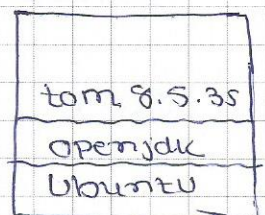 tom 8.5.35
openjdk
Ubuntu